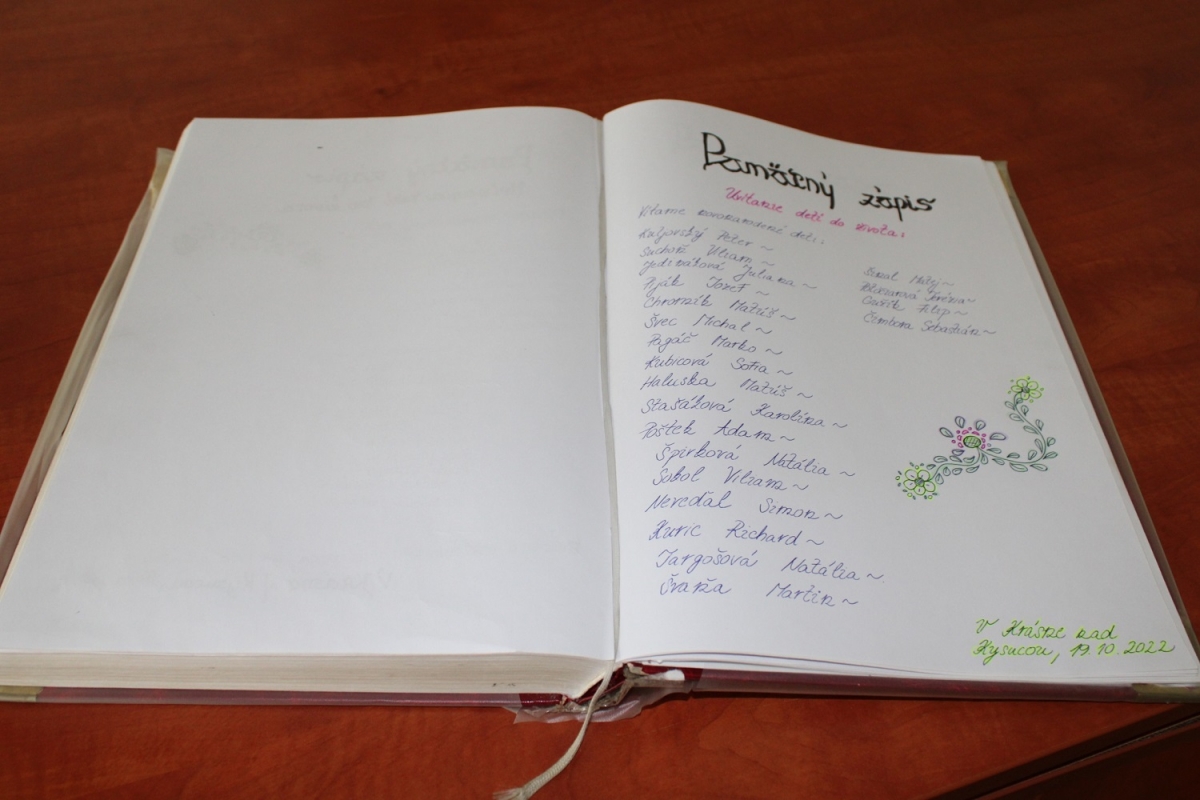 Pamätný zápis
Uvítanie detí do života:
Vítame novonarodené deti:
Kažovský Peter ~
Suchaň Viliam ~
Jedináková Juliana ~
Piják Jozef ~
Chromák Matúš ~
Švec Michal ~
Pagáč Marko ~
Kubicová Sofia ~
Haluska Matúš ~
Stašáková Karolína ~
Poštek Adam ~
Špirková Natália ~
Sobol Viliam ~
Nevedal Simon ~
Kuric Richard ~
Targošová Natália ~
Švaňa Martin ~
Matej ~
Terézia ~
Filip ~
Čimbora Sebastián ~
V Krásne nad
Kysucou, 19.10.2022